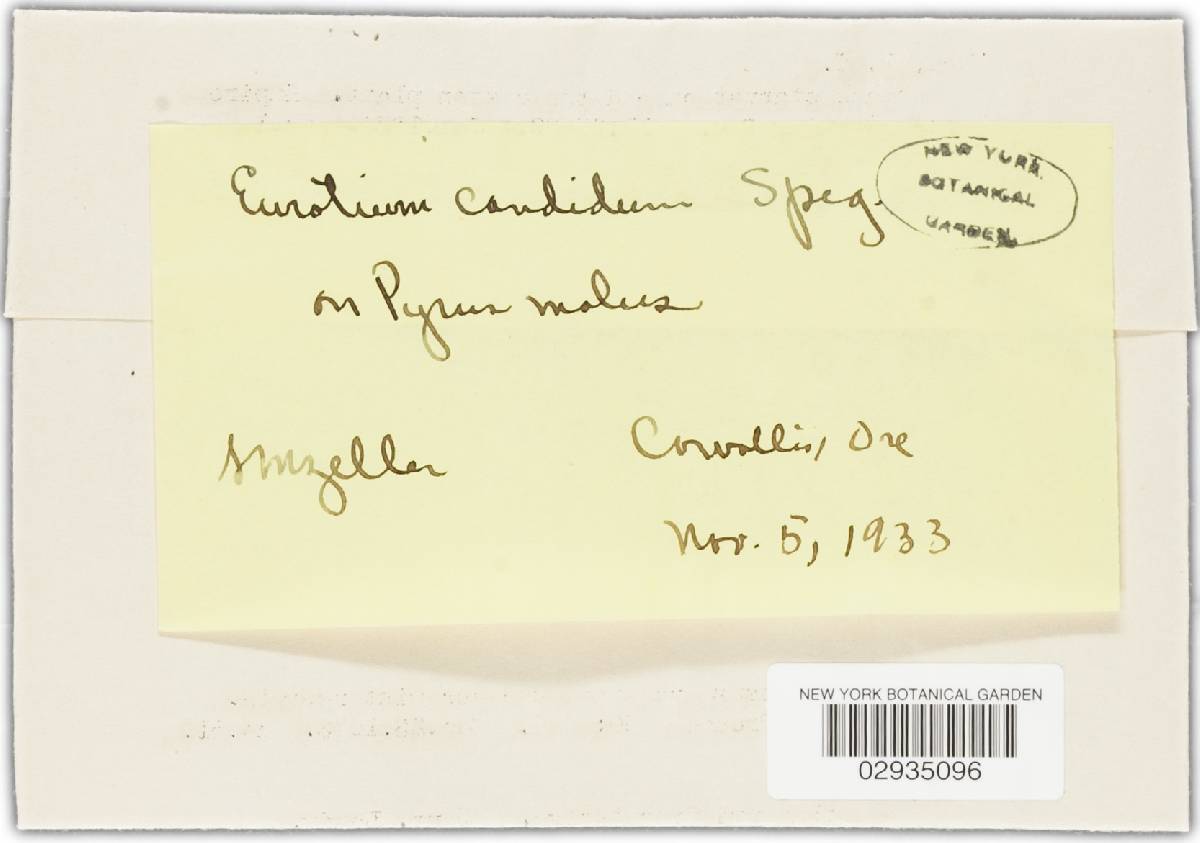 Eurotium candidum Speg.
NEW YORK
BOTANICAL
GARDEN
on Pyrus malus
SMZeller
Corvallis, Ore
Nov. 5, 1933
NEW YORK BOTANICAL GARDEN
02935096